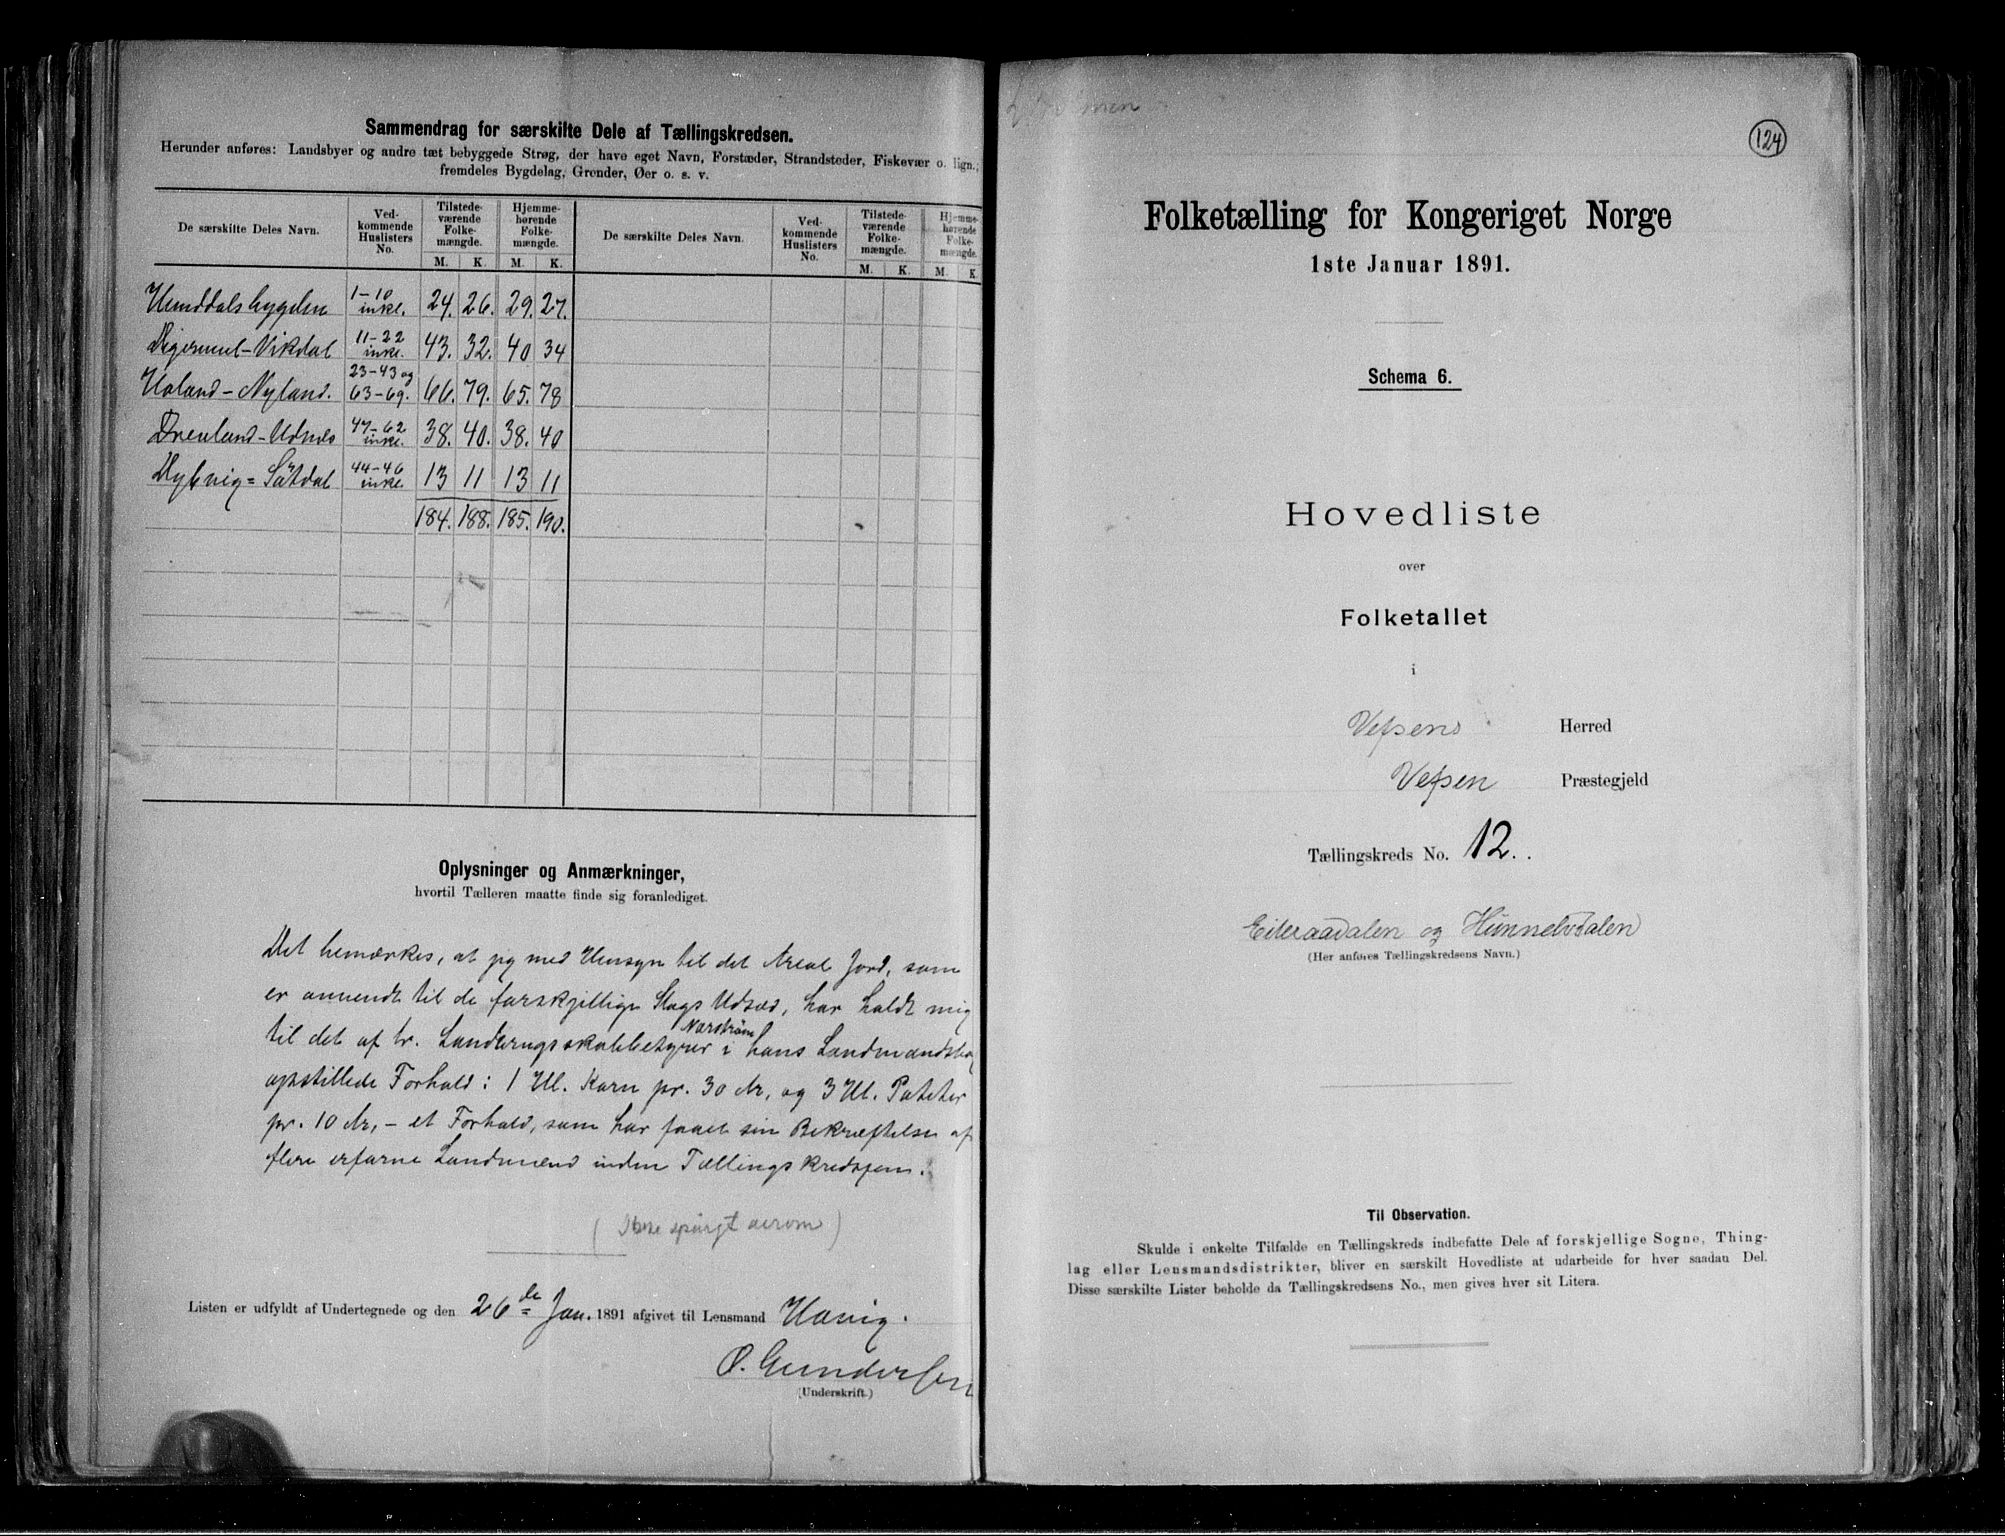 Sammendrag for særskilte Dele af Tællingskredsen.
Herunder anføres: Landsbyer og andre tæt bebyggede Strøg, der have eget Navn, Forstæder, Strandsteder, Fiskevær o. lign.;
fremdeles Bygdelag, Grender, Øer o. s. v.
De særskilte Deles Navn. Ved-kommende Huslisters No. Tilstede-værende Folke-mængde. Hjemme-hørende Folke-mængde. De særskilte Deles Navn. Ved-kommende Huslisters No. Tilstede-værende Folke-mængde. Hjemme-hørende Folke-mængde.
M. K. M. K. M. K. M. K.
1-10 inkl. 24. 26. 29. 27.
Digermul-Vikdal 11-22 inkl. 43. 32. 40 34
Holand-Nyland. 23-43 og 63-69. 66. 79. 65. 78
Drevland-Udnes 47-62 inkl. 38. 40. 38. 40
Dybvig=Sätdal 44-46 inkl. 13 11 13 11
184. 188. 185. 190.
Oplysninger og Anmærkninger,
hvortil Tælleren maatte finde sig foranlediget.
Det bemærkes, at jeg med Hensyn til det Areal Jord, som
er anvendt til de forskjellige Slags Udsæd, har holdt mig
til det af hr. Landbrugsskolebestyrer Norström i hans
opstillede Forhold: 1 Hl. Korn pr. 30 Ar, og 3 Hl. Poteter
pr. 10 Ar, - et Forhold, som har faaet sin Bekræftelse af
flere erfarne Landmænd inden Tællingskredsen.
(Ikke spurgt derom)
Listen er udfyldt af Undertegnede og den 26de Jan. 1891 afgivet til Lensmand Havig.
O. Gundersen
(Underskrift.)
124
Folketælling for Kongeriget Norge
1ste Januar 1891.
Schema 6.
Hovedliste
over
Folketallet
i
Vefsens Herred
Vefsen Præstegjeld
Tællingskreds No. 12.
Eiteraadalen og Hunnelvdalen
(Her anføres Tællingskredsens Navn.)
Til Observation.
Skulde i enkelte Tilfælde en Tællingskreds indbefatte Dele af forskjellige Sogne, Thing-
lag eller Lensmandsdistrikter, bliver en særskilt Hovedliste at udarbeide for hver saadan Del.
Disse særskilte Lister beholde da Tællingskredsens No., men gives hver sit Litera.